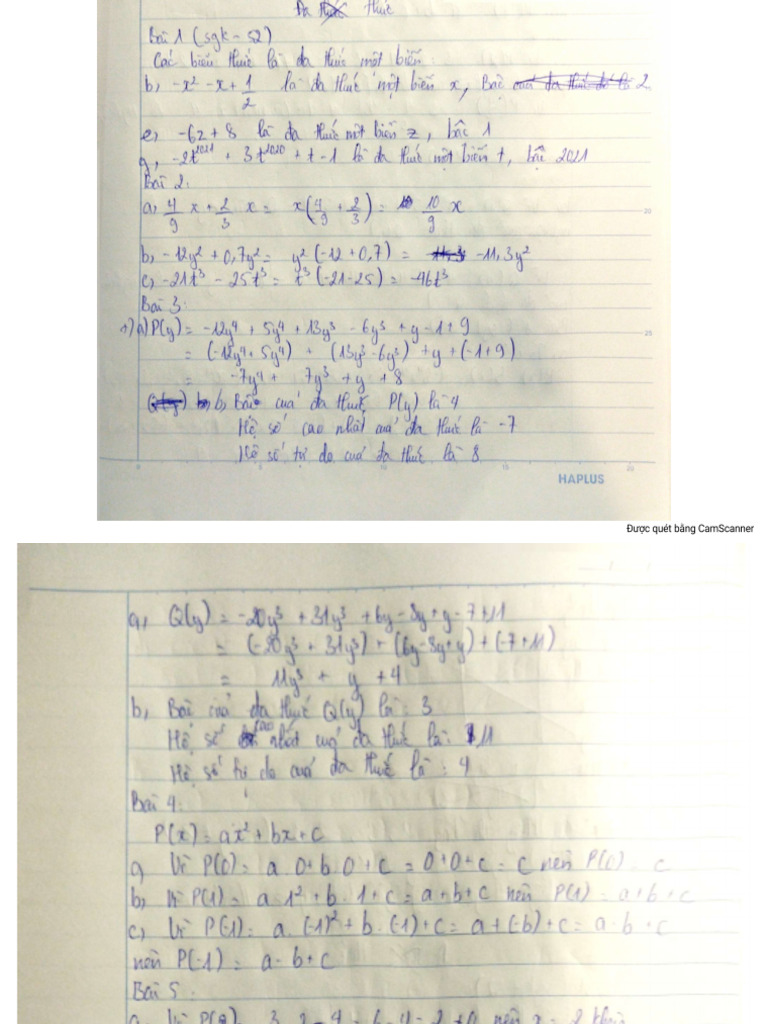 Đa thức
Bài 1 (sgk - 52)
Các biểu thức là đa thức một biến:
b, -x² - x + 1/2 là đa thức một biến x, Bậc 2
e, -6z + 8 là đa thức một biến z, bậc 1
g, -2t²⁰²¹ + 3t²⁰²⁰ + t - 1 là đa thức một biến t, bậc 2021
Bài 2:
a, 4/9 x + 2/3 x = x(4/9 + 2/3) = 10/9 x
b, -12y² + 0,7y² = y²(-12 + 0,7) = -11,3y²
c, -21t³ - 25t³ = t³(-21-25) = -46t³
Bài 3:
1) a) P(y) = -12y⁴ + 5y⁴ + 13y³ - 6y³ + y - 1 + 9
= (-12y⁴ + 5y⁴) + (13y³ - 6y³) + y + (-1 + 9)
= -7y⁴ + 7y³ + y + 8
b, Bậc của đa thức P(y) là 4
Hệ số cao nhất của đa thức là -7
Hệ số tự do của đa thức là 8
HAPLUS
Được quét bằng CamScanner
a, Q(y) = -20y³ + 31y³ + 6y - 8y + y - 7 + 11
= (-20y³ + 31y³) + (6y - 8y + y) + (-7 + 11)
= 11y³ + y + 4
b, Bậc của đa thức Q(y) là: 3
Hệ số cao nhất của đa thức là: 11
Hệ số tự do của đa thức là: 4
Bài 4:
P(x) = ax² + bx + c
a, Vì P(0) = a.0 + b.0 + c = 0 + 0 + c = c nên P(0) = c
b, Vì P(1) = a.1² + b.1 + c = a + b + c nên P(1) = a + b + c
c, Vì P(-1) = a.(-1)² + b.(-1) + c = a + (-b) + c = a - b + c
nên P(-1) = a - b + c
Bài 5:
a, Vì P(2) = 3.2 - 4 = 6 - 4 = 2 ≠ 0 nên x = 2